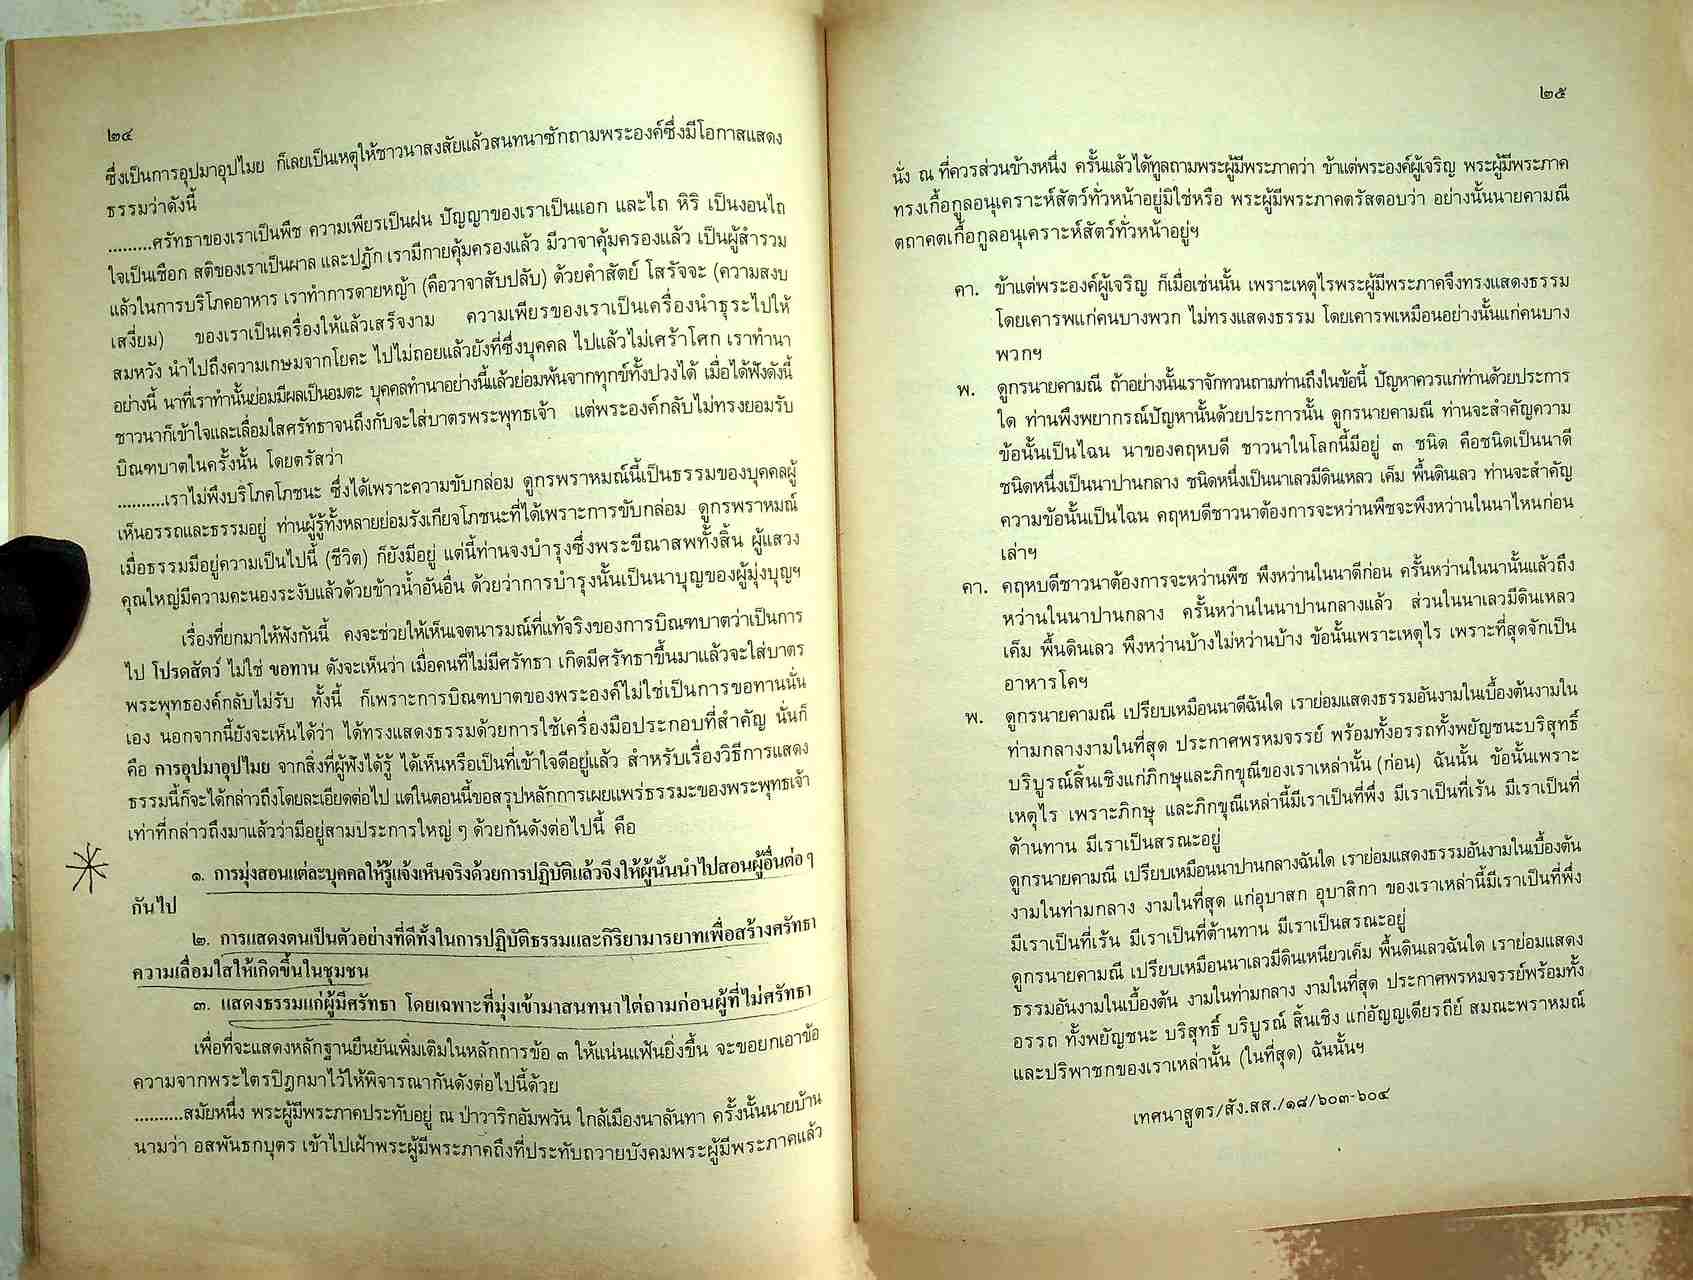 ๒๔
ซึ่งเป็นการอุปมาอุปไมย ก็เลยเป็นเหตุให้ชาวนาสงสัยแล้วสนทนาซักถามพระองค์ซึ่งมีโอกาสแสดง
ธรรมว่าดังนี้
..........ศรัทธาของเราเป็นพืช ความเพียรเป็นฝน ปัญญาของเราเป็นแอก และไถ หิริ เป็นงอนไถ
ใจเป็นเชือก สติของเราเป็นผาล และปฏัก เรามีกายคุ้มครองแล้ว มีวาจาคุ้มครองแล้ว เป็นผู้สำรวม
แล้วในการบริโภคอาหาร เราทำการดายหญ้า (คือวาจาสับปลับ) ด้วยคำสัตย์ โสรัจจะ (ความสงบ
เสงี่ยม) ของเราเป็นเครื่องให้แล้วเสร็จงาม ความเพียรของเราเป็นเครื่องนำธุระไปให้
สมหวัง นำไปถึงความเกษมจากโยคะ ไปไม่ถอยแล้วยังที่ซึ่งบุคคล ไปแล้วไม่เศร้าโศก เราทำนา
อย่างนี้ นาที่เราทำนั้นย่อมมีผลเป็นอมตะ บุคคลทำนาอย่างนี้แล้วย่อมพ้นจากทุกข์ทั้งปวงได้ เมื่อได้ฟังดังนี้
ชาวนาก็เข้าใจและเลื่อมใสศรัทธาจนถึงกับจะใส่บาตรพระพุทธเจ้า แต่พระองค์กลับไม่ทรงยอมรับ
บิณฑบาตในครั้งนั้น โดยตรัสว่า
..........เราไม่พึงบริโภคโภชนะ ซึ่งได้เพราะความขับกล่อม ดูกรพราหมณ์นี้เป็นธรรมของบุคคลผู้
เห็นอรรถและธรรมอยู่ ท่านผู้รู้ทั้งหลายย่อมรังเกียจโภชนะที่ได้เพราะการขับกล่อม ดูกรพราหมณ์
เมื่อธรรมมีอยู่ความเป็นไปนี้ (ชีวิต) ก็ยังมีอยู่ แต่นี้ท่านจงบำรุงซึ่งพระขีณาสพทั้งสิ้น ผู้แสวง
คุณใหญ่มีความคะนองระงับแล้วด้วยข้าวน้ำอันอื่น ด้วยว่าการบำรุงนั้นเป็นนาบุญของผู้มุ่งบุญฯ
เรื่องที่ยกมาให้ฟังกันนี้ คงจะช่วยให้เห็นเจตนารมณ์ที่แท้จริงของการบิณฑบาตว่าเป็นการ
ไป โปรดสัตว์ ไม่ใช่ ขอทาน ดังจะเห็นว่า เมื่อคนที่ไม่มีศรัทธา เกิดมีศรัทธาขึ้นมาแล้วจะใส่บาตร
พระพุทธองค์กลับไม่รับ ทั้งนี้ ก็เพราะการบิณฑบาตของพระองค์ไม่ใช่เป็นการขอทานนั่น
เอง นอกจากนี้ยังจะเห็นได้ว่า ได้ทรงแสดงธรรมด้วยการใช้เครื่องมือประกอบที่สำคัญ นั่นก็
คือ การอุปมาอุปไมย จากสิ่งที่ผู้ฟังได้รู้ ได้เห็นหรือเป็นที่เข้าใจดีอยู่แล้ว สำหรับเรื่องวิธีการแสดง
ธรรมนี้ก็จะได้กล่าวถึงโดยละเอียดต่อไป แต่ในตอนนี้ขอสรุปหลักการเผยแพร่ธรรมะของพระพุทธเจ้า
เท่าที่กล่าวถึงมาแล้วว่ามีอยู่สามประการใหญ่ ๆ ด้วยกันดังต่อไปนี้ คือ
๑. การมุ่งสอนแต่ละบุคคลให้รู้แจ้งเห็นจริงด้วยการปฏิบัติแล้วจึงให้ผู้นั้นนำไปสอนผู้อื่นต่อ ๆ
กันไป
๒. การแสดงตนเป็นตัวอย่างที่ดีทั้งในการปฏิบัติธรรมและกิริยามารยาทเพื่อสร้างศรัทธา
ความเลื่อมใสให้เกิดขึ้นในชุมชน
๓. แสดงธรรมแก่ผู้มีศรัทธา โดยเฉพาะที่มุ่งเข้ามาสนทนาไต่ถามก่อนผู้ที่ไม่ศรัทธา
เพื่อที่จะแสดงหลักฐานยืนยันเพิ่มเติมในหลักการข้อ ๓ ให้แน่นแฟ้นยิ่งขึ้น จะขอยกเอาข้อ
ความจากพระไตรปิฎกมาไว้ให้พิจารณากันดังต่อไปนี้ด้วย
..........สมัยหนึ่ง พระผู้มีพระภาคประทับอยู่ ณ ป่าวาริกอัมพวัน ใกล้เมืองนาลันทา ครั้งนั้นนายบ้าน
นามว่า อสพันธกบุตร เข้าไปเฝ้าพระผู้มีพระภาคถึงที่ประทับถวายบังคมพระผู้มีพระภาคแล้ว
๒๕
นั่ง ณ ที่ควรส่วนข้างหนึ่ง ครั้นแล้วได้ทูลถามพระผู้มีพระภาคว่า ข้าแต่พระองค์ผู้เจริญ พระผู้มีพระภาค
ทรงเกื้อกูลอนุเคราะห์สัตว์ทั่วหน้าอยู่มิใช่หรือ พระผู้มีพระภาคตรัสตอบว่า อย่างนั้นนายคามณี
ตถาคตเกื้อกูลอนุเคราะห์สัตว์ทั่วหน้าอยู่ฯ
คา. ข้าแต่พระองค์ผู้เจริญ ก็เมื่อเช่นนั้น เพราะเหตุไรพระผู้มีพระภาคจึงทรงแสดงธรรม
โดยเคารพแก่คนบางพวก ไม่ทรงแสดงธรรม โดยเคารพเหมือนอย่างนั้นแก่คนบาง
พวกฯ
พ. ดูกรนายคามณี ถ้าอย่างนั้นเราจักทวนถามท่านถึงในข้อนี้ ปัญหาควรแก่ท่านด้วยประการ
ใด ท่านพึงพยากรณ์ปัญหานั้นด้วยประการนั้น ดูกรนายคามณี ท่านจะสำคัญความ
ข้อนั้นเป็นไฉน นาของคฤหบดี ชาวนาในโลกนี้มีอยู่ ๓ ชนิด คือชนิดเป็นนาดี
ชนิดหนึ่งเป็นนาปานกลาง ชนิดหนึ่งเป็นนาเลวมีดินเหลว เค็ม พื้นดินเลว ท่านจะสำคัญ
ความข้อนั้นเป็นไฉน คฤหบดีชาวนาต้องการจะหว่านพืชจะพึงหว่านในนาไหนก่อน
เล่าฯ
คา. คฤหบดีชาวนาต้องการจะหว่านพืช พึงหว่านในนาดีก่อน ครั้นหว่านในนานั้นแล้วถึง
หว่านในนาปานกลาง ครั้นหว่านในนาปานกลางแล้ว ส่วนในนาเลวมีดินเหลว
เค็ม พื้นดินเลว พึงหว่านบ้างไม่หว่านบ้าง ข้อนั้นเพราะเหตุไร เพราะที่สุดจักเป็น
อาหารโคฯ
พ. ดูกรนายคามณี เปรียบเหมือนนาดีฉันใด เราย่อมแสดงธรรมอันงามในเบื้องต้นงามใน
ท่ามกลางงามในที่สุด ประกาศพรหมจรรย์ พร้อมทั้งอรรถทั้งพยัญชนะบริสุทธิ์
บริบูรณ์สิ้นเชิงแก่ภิกษุและภิกขุณีของเราเหล่านั้น (ก่อน) ฉันนั้น ข้อนั้นเพราะ
เหตุไร เพราะภิกษุ และภิกขุณีเหล่านี้มีเราเป็นที่พึ่ง มีเราเป็นที่เร้น มีเราเป็นที่
ต้านทาน มีเราเป็นสรณะอยู่
ดูกรนายคามณี เปรียบเหมือนนาปานกลางฉันใด เราย่อมแสดงธรรมอันงามในเบื้องต้น
งามในท่ามกลาง งามในที่สุด แก่อุบาสก อุบาสิกา ของเราเหล่านี้มีเราเป็นที่พึ่ง
มีเราเป็นที่เร้น มีเราเป็นที่ต้านทาน มีเราเป็นสรณะอยู่
ดูกรนายคามณี เปรียบเหมือนนาเลวมีดินเหนียวเค็ม พื้นดินเลวฉันใด เราย่อมแสดง
ธรรมอันงามในเบื้องต้น งามในท่ามกลาง งามในที่สุด ประกาศพรหมจรรย์พร้อมทั้ง
อรรถ ทั้งพยัญชนะ บริสุทธิ์ บริบูรณ์ สิ้นเชิง แก่อัญญเดียรถีย์ สมณะพราหมณ์
และปริพาชกของเราเหล่านั้น (ในที่สุด) ฉันนั้นฯ
เทศนาสูตร/สัง.สส./๑๘/๖๐๓-๖๐๔